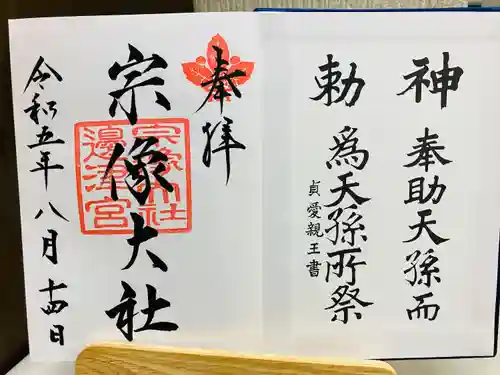 神勅
奉助天孫而
為天孫所祭
貞愛親王書
奉拝
宗像大社
宗像大社
邊津宮
令和五年八月十四日